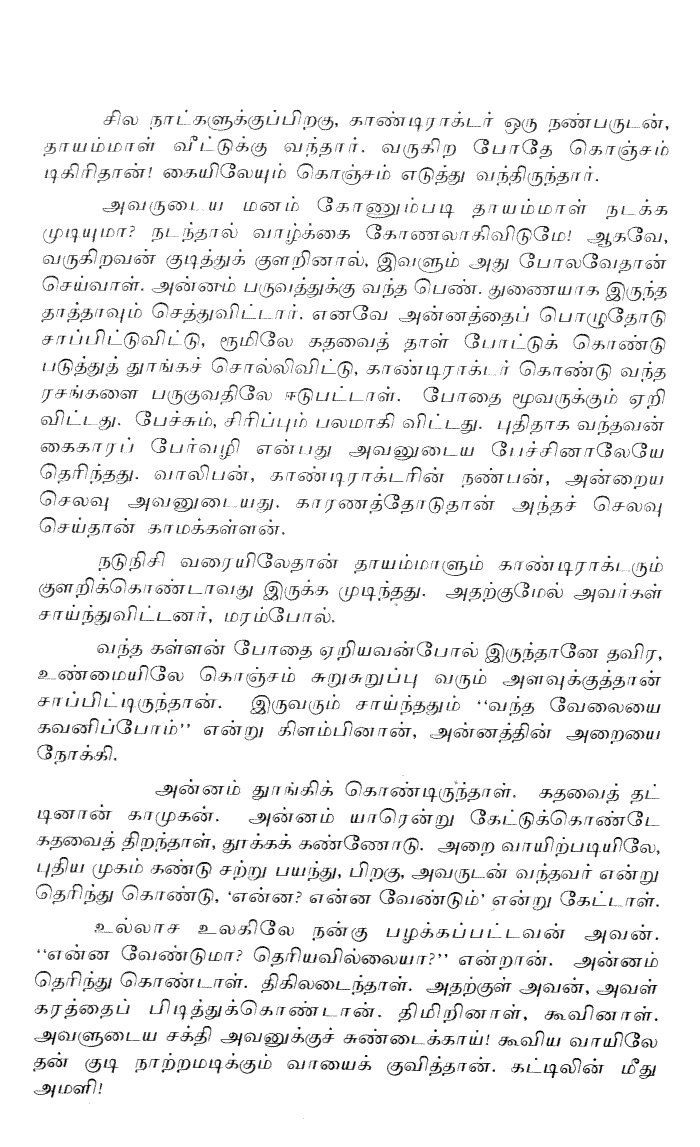 சில நாட்களுக்குப்பிறகு, காண்டிராக்டர் ஒரு நண்பருடன்,
தாயம்மாள் வீட்டுக்கு வந்தார். வருகிற போதே கொஞ்சம்
டிகிரிதான்! கையிலேயும் கொஞ்சம் எடுத்து வந்திருந்தார்.
அவருடைய மனம் கோணும்படி தாயம்மாள் நடக்க
முடியுமா? நடந்தால் வாழ்க்கை கோணலாகிவிடுமே! ஆகவே,
வருகிறவன் குடித்துக் குளறினால், இவளும் அது போலவேதான்
செய்வாள். அன்னம் பருவத்துக்கு வந்த பெண். துணையாக இருந்த
தாத்தாவும் செத்துவிட்டார். எனவே அன்னத்தைப் பொழுதோடு
சாப்பிட்டுவிட்டு, ரூமிலே கதவைத் தாள் போட்டுக் கொண்டு
படுத்துத் தூங்கச் சொல்லிவிட்டு, காண்டிராக்டர் கொண்டு வந்த
ரசங்களை பருகுவதிலே ஈடுபட்டாள். போதை மூவருக்கும் ஏறி
விட்டது. பேச்சும், சிரிப்பும் பலமாகி விட்டது. புதிதாக வந்தவன்
கைகாரப் பேர்வழி என்பது அவனுடைய பேச்சினாலேயே
தெரிந்தது. வாலிபன், காண்டிராக்டரின் நண்பன், அன்றைய
செலவு அவனுடையது. காரணத்தோடுதான் அந்தச் செலவு
செய்தான் காமக்கள்ளன்.
நடுநிசி வரையிலேதான் தாயம்மாளும் காண்டிராக்டரும்
குளறிக்கொண்டாவது இருக்க முடிந்தது. அதற்குமேல் அவர்கள்
சாய்ந்துவிட்டனர், மரம்போல்.
வந்த கள்ளன் போதை ஏறியவன்போல் இருந்தானே தவிர,
உண்மையிலே கொஞ்சம் சுறுசுறுப்பு வரும் அளவுக்குத்தான்
சாப்பிட்டிருந்தான். இருவரும் சாய்ந்ததும் “வந்த வேலையை
கவனிப்போம்” என்று கிளம்பினான், அன்னத்தின் அறையை
நோக்கி.
அன்னம் தூங்கிக் கொண்டிருந்தாள். கதவைத் தட்
டினான் காமுகன். அன்னம் யாரென்று கேட்டுக்கொண்டே
கதவைத் திறந்தாள், தூக்கக் கண்ணோடு. அறை வாயிற்படியிலே,
புதிய முகம் கண்டு சற்று பயந்து, பிறகு, அவருடன் வந்தவர் என்று
தெரிந்து கொண்டு, ‘என்ன? என்ன வேண்டும்’ என்று கேட்டாள்.
உல்லாச உலகிலே நன்கு பழக்கப்பட்டவன் அவன்.
“என்ன வேண்டுமா? தெரியவில்லையா?” என்றான். அன்னம்
தெரிந்து கொண்டாள். திகிலடைந்தாள். அதற்குள் அவன், அவள்
கரத்தைப் பிடித்துக்கொண்டான். திமிறினாள், கூவினாள்.
அவளுடைய சக்தி அவனுக்குச் சுண்டைக்காய்! கூவிய வாயிலே
தன் குடி நாற்றமடிக்கும் வாயைக் குவித்தான். கட்டிலின் மீது
அமளி!